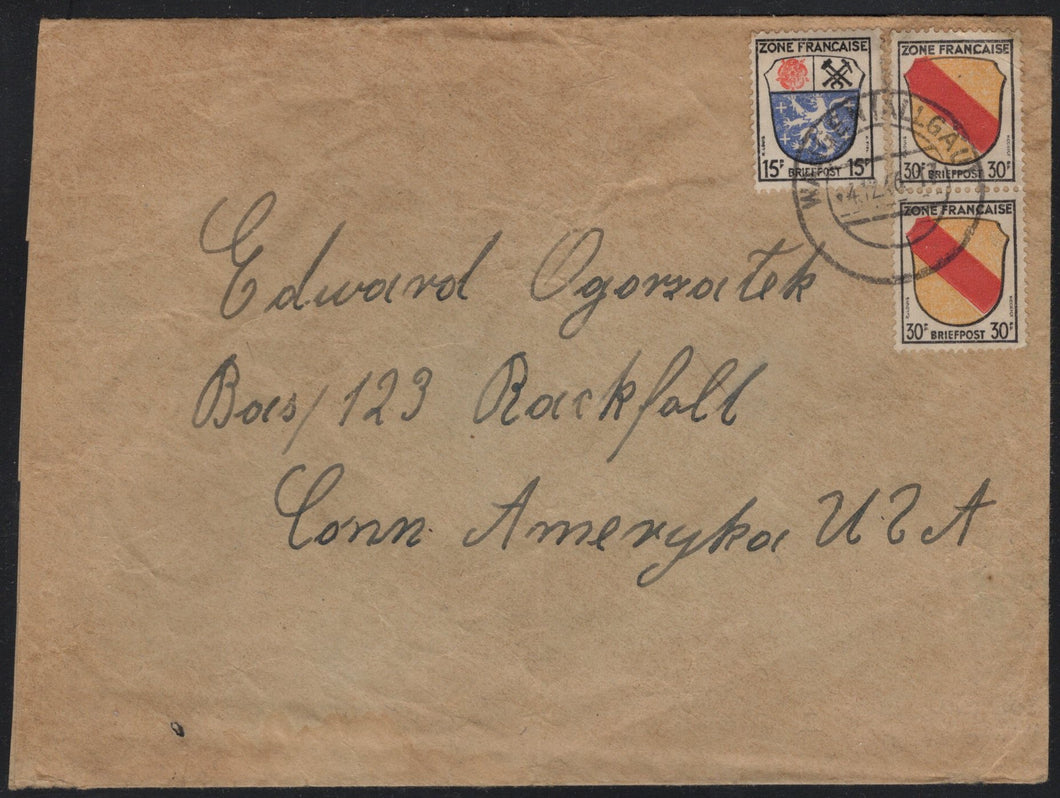 ZONE FRANCAISE
15F BRIEFPOST 15F
ZONE FRANCAISE
30F BRIEFPOST 30F
ZONE FRANCAISE
30F BRIEFPOST 30F
Edward Ogorzatek
Box/123 Rackfall
Conn. Ameryka USA